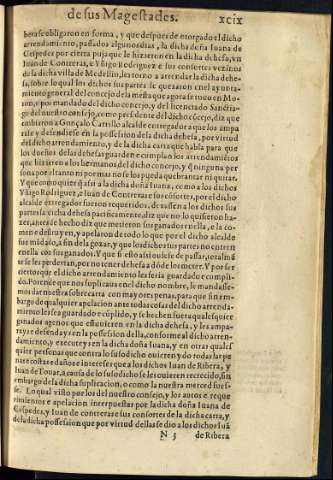 de sus Magestades. xcix
hera se obligaron en forma, y que despues de otorgado el dicho
arrendamiento, passados algunos dias, la dicha doña Iuana de
Cespedes por cierta puja que le hizieron en la dicha dehesa, y
Iuan de Contreras, e Yñigo Rodriguez sus consortes vezinos
de la dicha villa de Medellin, les torno a arrendar la dicha dehe
sa, sobre lo qual los dichos sus partes se quexaron en el ayunta
miento general del concejo de la mesta que agora se tuuo en
y por mandado del dicho concejo, y del licenciado
go del nuestro consejo, como presidente del dicho cōcejo, diz que
embiaron a Gonçalo Carrillo alcalde entregador a que los ampa
rasse y defendiesse en la possession de la dicha dehesa, por virtud
del dicho arrendamiento, y de la dicha carta que habla para que
los dueños de las dehesas guarden e cumplan los arrendamiētos
que hizieren a los hermanos del dicho concejo, y q̄ ninguna per
sona por el tanto ni por mas no se los pueda quebrantar ni quitar.
Y que como quier q̄ assi a la dicha doña Iuana, como a los dichos
Yñigo Rodriguez, e Iuan de Contreras e sus cōsortes, por el dicho
alcalde entregador fueron requeridos, dexassen a los dichos sus
partes la dicha dehesa pacificamente, diz que no lo quisieron ha
zer, antes de hecho diz que metieron sus ganados en ella, e la co
men e destruyen, y apelaron de todo lo que por el dicho alcalde
fue mādado, a fin de la gozar, y que los dichos sus partes no entren
en ella cō sus ganados. Y que si esto assi ouiesse de passar, sus
se les perderian, por no tener dehesa a dōde los meter. Y por ser
cierto que el dicho arrendamiento les seria guardado e cumpli
do. Por ende que nos suplicaua en el dicho nombre, le mandasse
mos dar nuestra sobrecarta con mayores penas, para que sin em
bargo de qualquier apelacion ante todas cosas del dicho arrenda
miento les sea guardado e cūplido, y se hechen fuera qualesquier
ganados agenos que estouieren en la dicha dehesa, y les ampa
reys e defendays en la possession della, conforme al dicho arren
damiento, y executeys en la dicha doña Iuana, y en otras quales
quier personas que contra lo susodicho ouieren y do todas las pe
nas e costas e daños e interesses que a los dichos Iuan de Ribera, y
Iuan de Touar, a causa de lo susodicho se les ouieren recrecido, sin
embargo de la dicha suplicacion, o como la nuestra merced fues
se. Lo qual visto por los del nuestro consejo, y los autos e reque
rimientos e apelacion interpuestas por la dicha doña Iuana de
Cespedes, y Iuan de contreras e sus consortes de la dicha carta, y
de la dicha possession que por virtud della se dio a los dichos Iuā
N 3 de Ribera